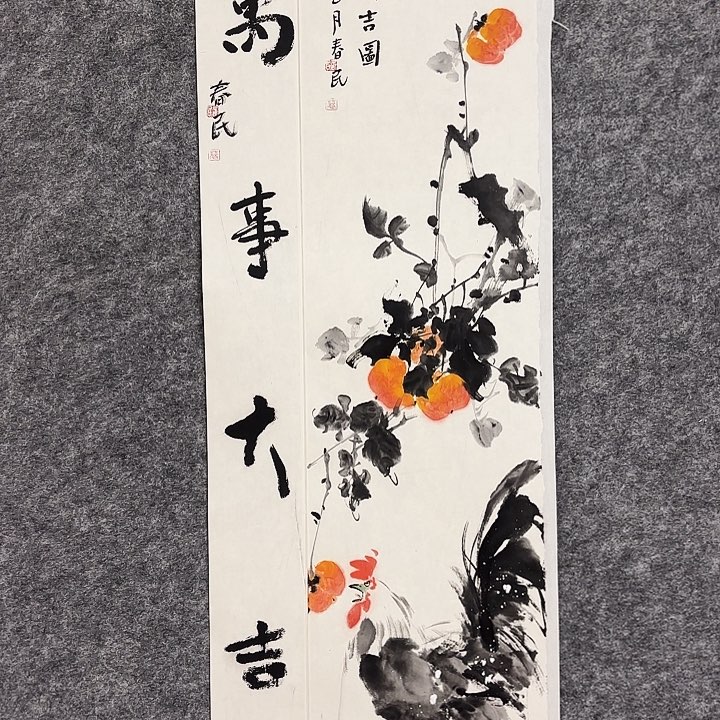 吉圖
月春民
萬事大吉
春民